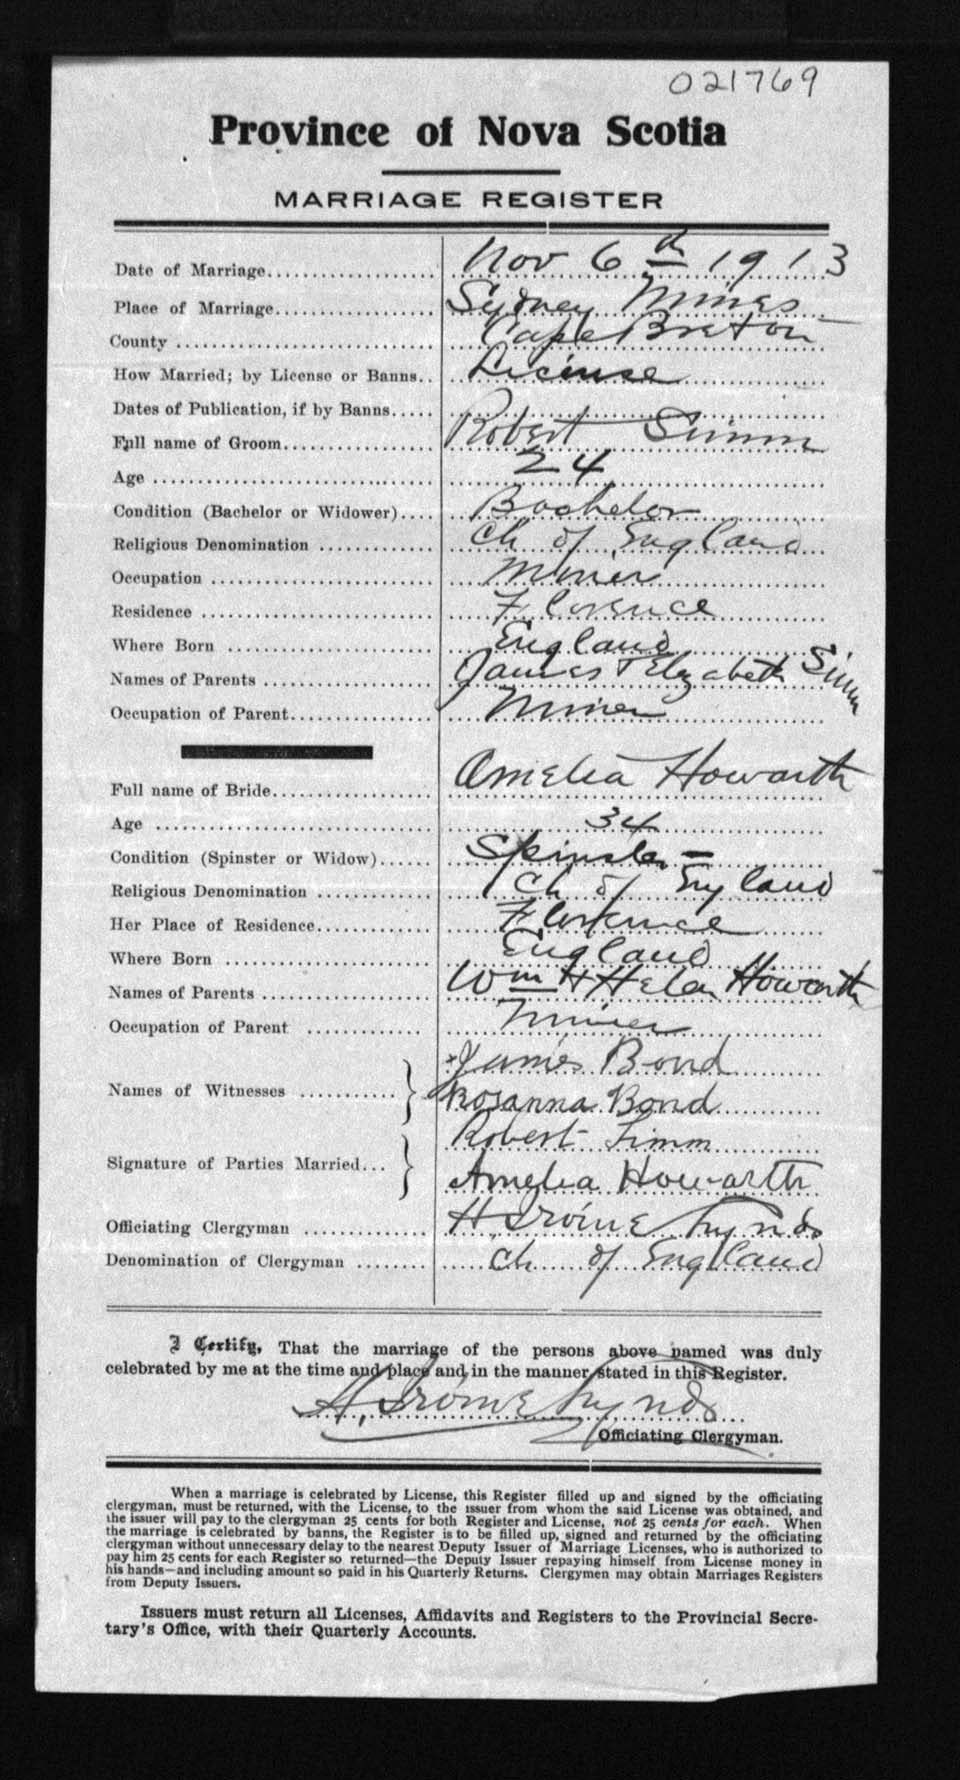 021769
Province of Nova Scotia
MARRIAGE REGISTER
Date of Marriage Nov 6th 1913
Place of Marriage Sydney Mines
County Cape Breton
How Married; by License or Banns License
Dates of Publication, if by Banns
Full name of Groom Robert Simm
Age 24
Condition (Bachelor or Widower) Bachelor
Religious Denomination Ch of England
Occupation Miner
Residence Florence
Where Born England
Names of Parents James & Elizabeth Simm
Occupation of Parent Miner
Full name of Bride Amelia Howarth
Age 34
Condition (Spinster or Widow) Spinster
Religious Denomination Ch of England
Her Place of Residence Florence
Where Born England
Names of Parents Wm H Helen Howarth
Occupation of Parent Miner
James Bond
Names of Witnesses
Rosanna Bond
Robert Simm
Signature of Parties Married
Amelia Howarth
Officiating Clergyman H
Denomination of Clergyman Ch of England
I Certify, That the marriage of the persons above named was duly
celebrated by me at the time and place and in the manner stated in this Register.
A.
Officiating Clergyman.
When a marriage is celebrated by License, this Register filled up and signed by the officiating
clergyman, must be returned, with the License, to the issuer from whom the said License was obtained, and
the issuer will pay to the clergyman 25 cents for both Register and License, not 25 cents for each. When
the marriage is celebrated by banns, the Register is to be filled up, signed and returned by the officiating
clergyman without unnecessary delay to the nearest Deputy Issuer of Marriage Licenses, who is authorized to
pay him 25 cents for each Register so returned—the Deputy Issuer repaying himself from License money in
his hands—and including amount so paid in his Quarterly Returns. Clergymen may obtain Marriages Registers
from Deputy Issuers.
Issuers must return all Licenses, Affidavits and Registers to the Provincial Secre-
tary's Office, with their Quarterly Accounts.